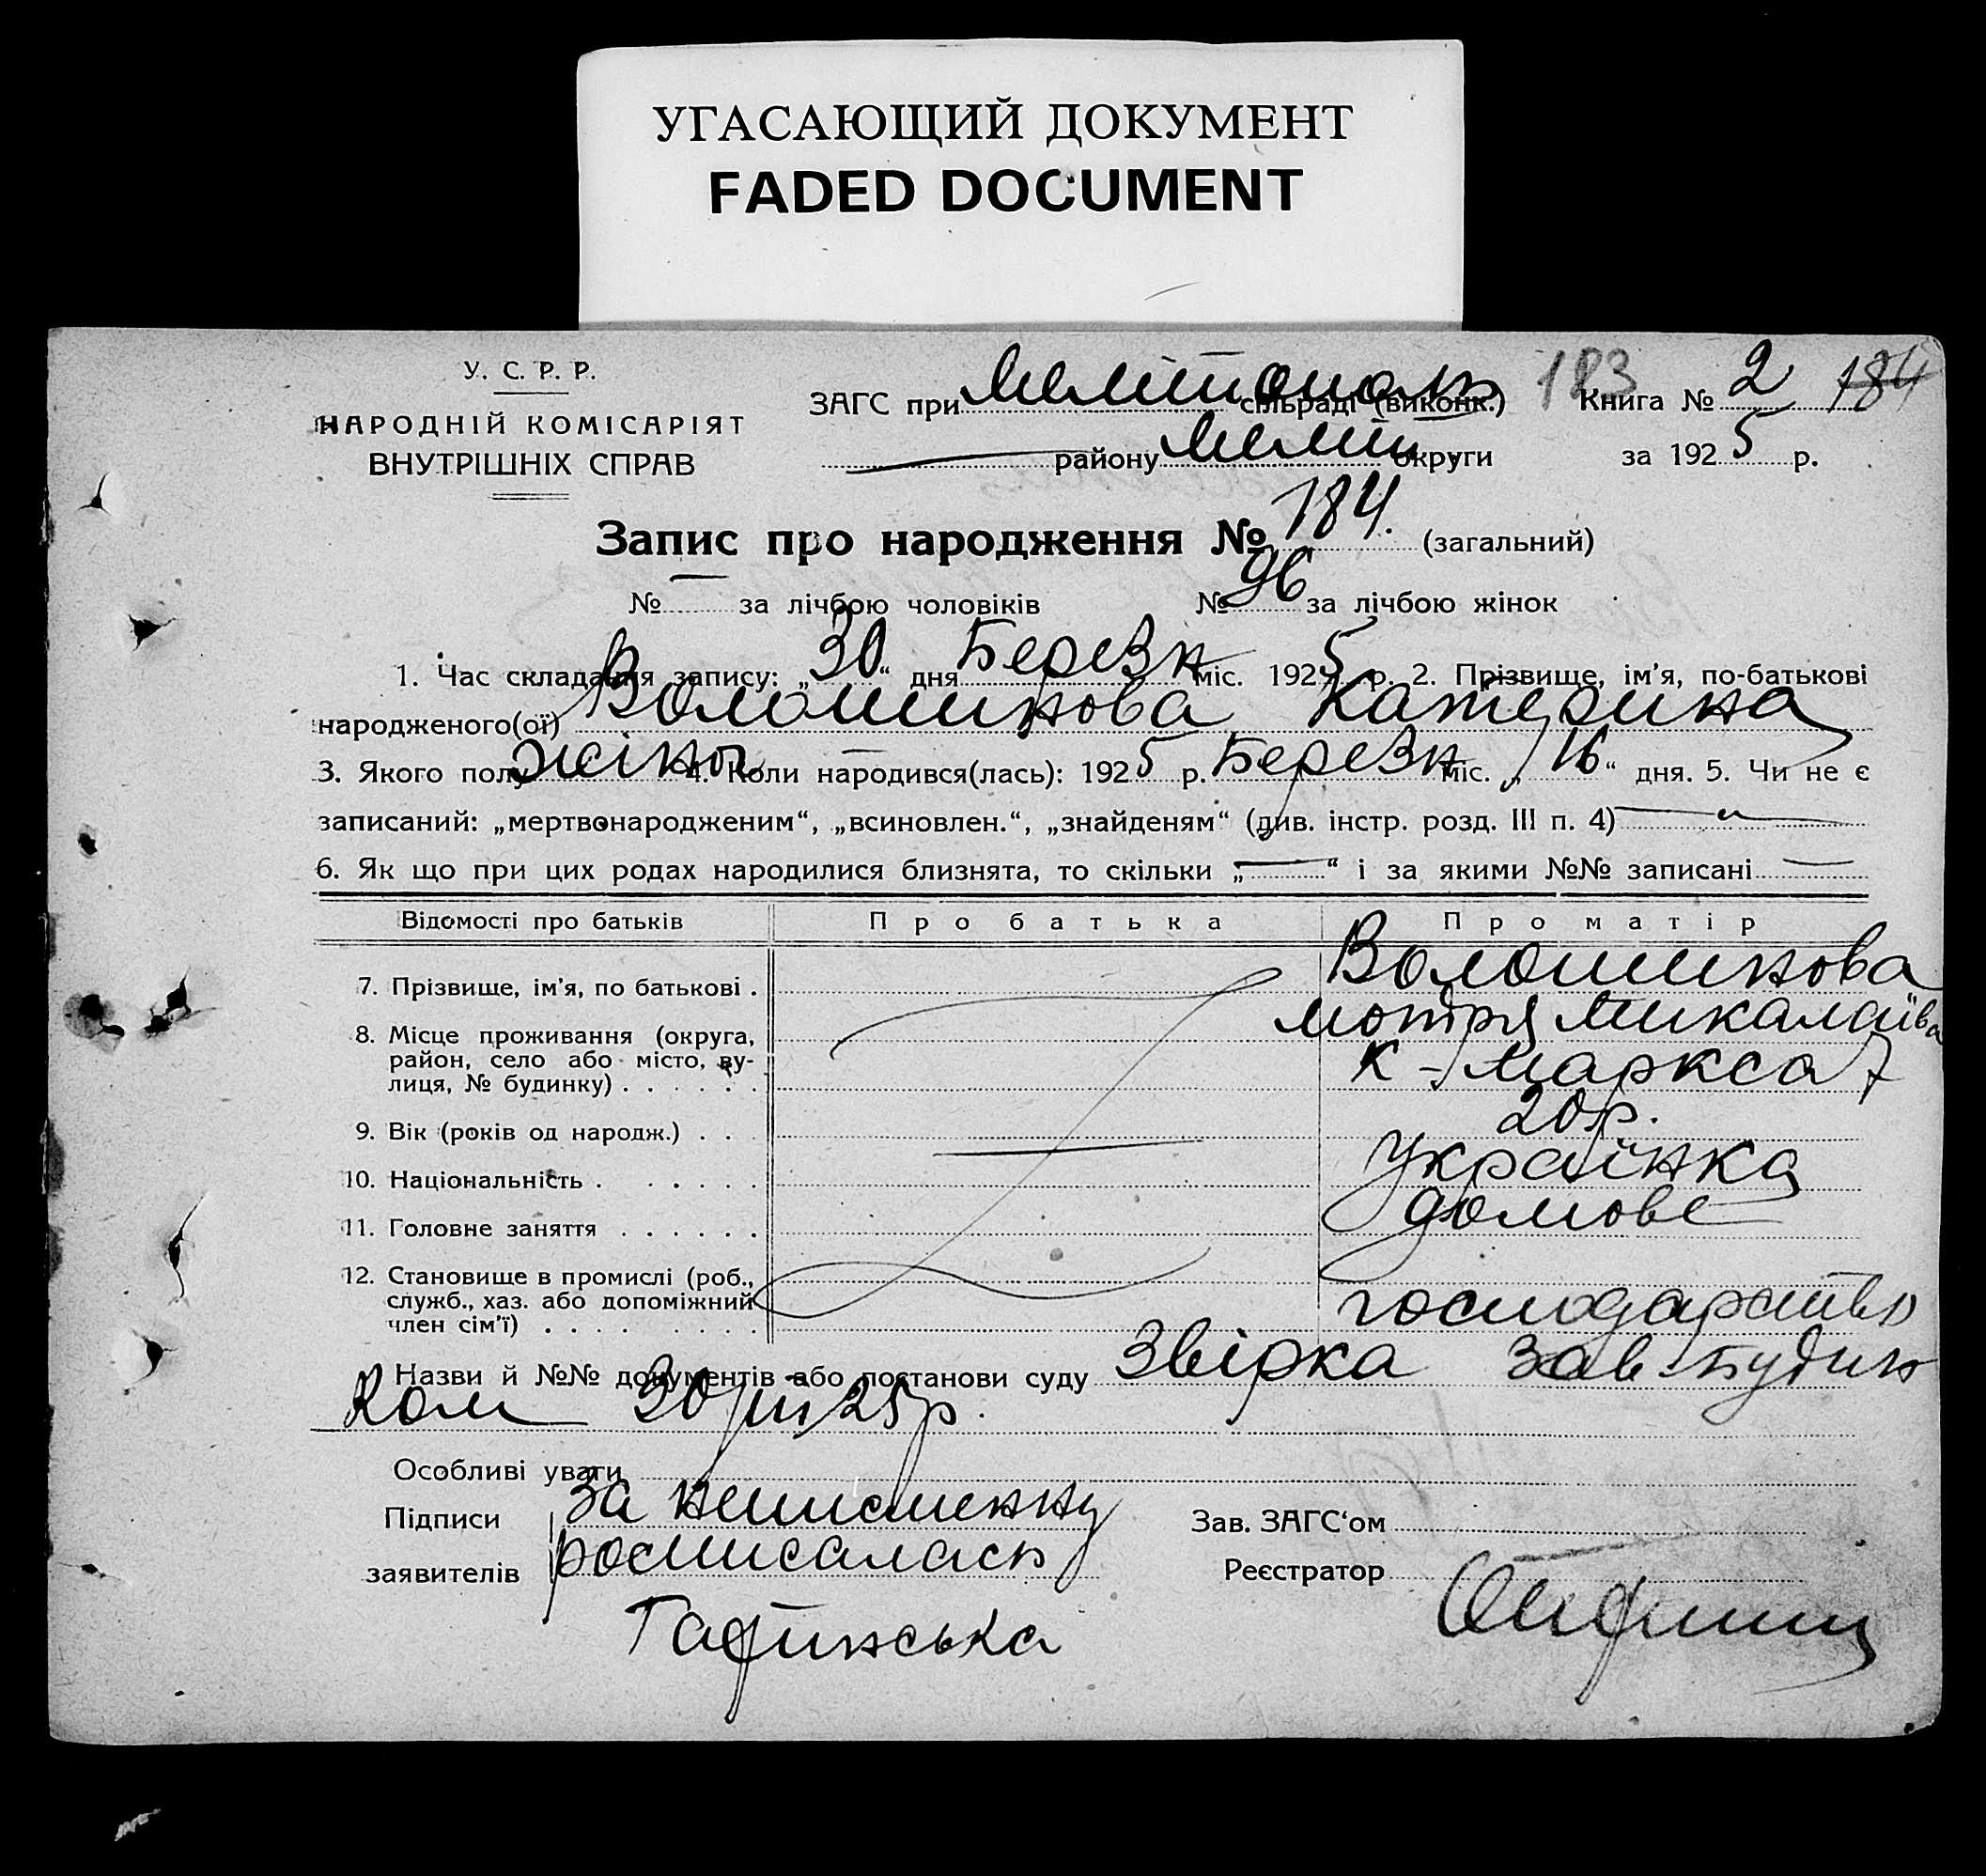 УГАСАЮЩИЙ ДОКУМЕНТ
FADED DOCUMENT
У. С. Р. Р.
НАРОДНІЙ КОМІСАРІЯТ
ВНУТРІШНІХ СПРАВ
ЗАГС при Мелітополь сільраді (виконк.) 183 Книга № 2 184
району Меліт округи за 1925 р.
Запис про народження № 184. (загальний)
№ — за лічбою чоловіків № 96 за лічбою жінок
1. Час складання запису: „30“ дня Березн міс. 1925 р. 2. Прізвище, ім'я, по-батькові
народженого(ої) Волошинова Катерина
3. Якого полу жіноч 4. Коли народився(лась): 1925 р. Березн міс. „16“ дня. 5. Чи не є
записаний: „мертвонародженим“, „всиновлен.“, „знайденям“ (див. інстр. розд. III п. 4) —
6. Як що при цих родах народилися близнята, то скільки „—“ і за якими №№ записані —
Відомості про батьків Про батька Про матір
7. Прізвище, ім'я, по батькові . Волошинова
Мотря Микалаівна
8. Місце проживання (округа,
район, село або місто, ву-
лиця, № будинку) . . . . . . К-Маркса 7
9. Вік (років од народж.) . . — 20 р.
10. Національність . . . . . . Українка
11. Головне заняття . . . . . . домове
12. Становище в промислі (роб.,
служб., хаз. або допоміжний
член сім'ї) . . . . . . . . господарство
Назви й №№ документів або постанови суду Звірка Зав будин
Ком 30/III/25р.
Особливі уваги
Підписи За неписменну Зав. ЗАГС‘ом
заявителів росписалась Реєстратор